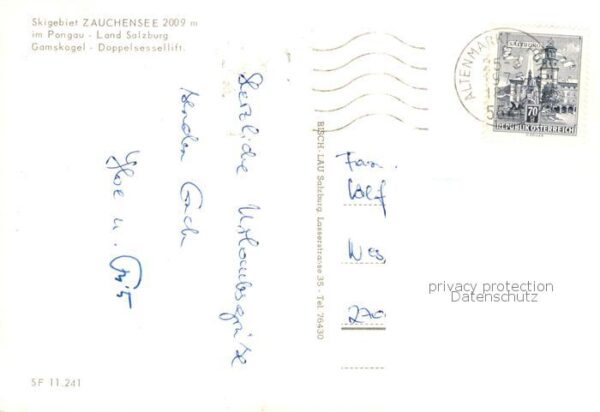 Skigebiet ZAUCHENSEE 2009 m
im Pongau - Land Salzburg
Gamskogel - Doppelsessellift.
Herzliche Urlaubsgrüße
senden Euch
u.
BISCH-LAU Salzburg, Lasserstrasse 35 - Tel. 76430
ALTENMARKT
SALZBURG
70
REPUBLIK ÖSTERREICH
Fam.
270
privacy protection
Datenschutz
SF 11.241